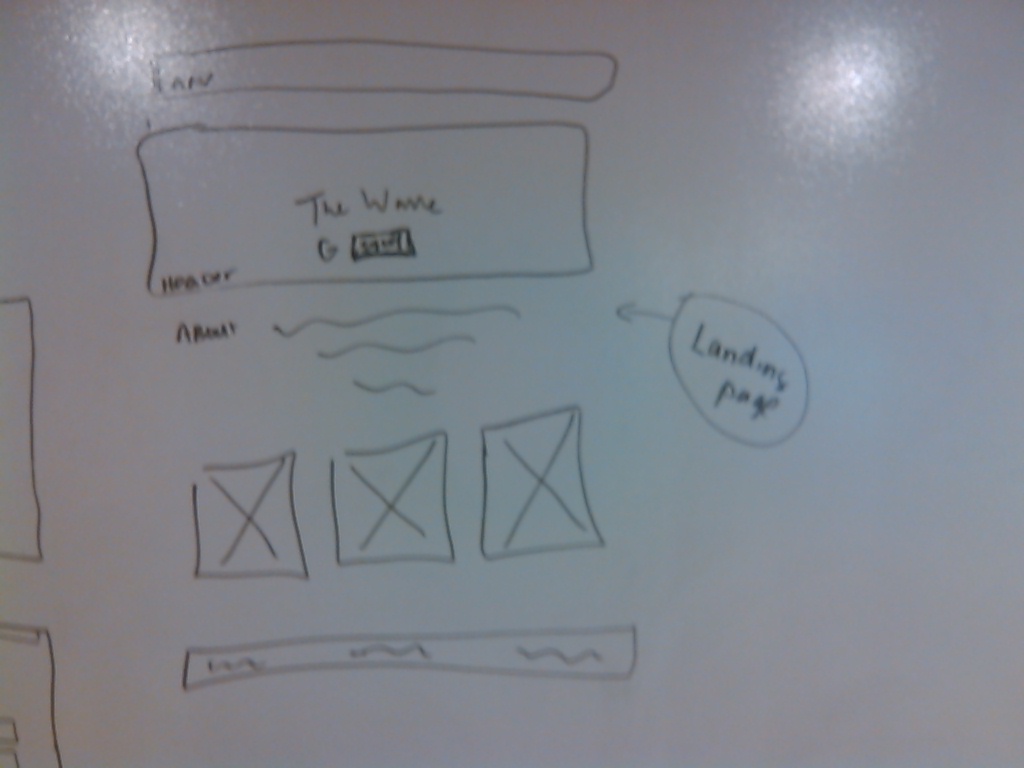 nav
The Wave
G
Header
About
Landing
page